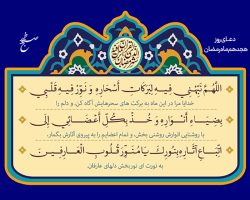 دعـای روز
هجدهم ماه رمضان
اَللّهُمَّ نَبِّهْنی فیهِ لِبَرَکاتِ اَسْحارِهِ وَ نَوِّرْ فیهِ قَلْبی
خدایا مرا در این ماه به برکت های سحرهایش آگاه کن، و دلم را
بِضِیاءِ اَنْوارِهِ وَ خُذْ بِکُلِّ اَعْضائی اِلَی
با روشنایی انوارش روشنی بخش، و تمام اعضایم را به پیروی آثارش بگمار،
اتِّباعِ آثارِهِ بِنُورِکَ یا مُنَوِّرَ قُلُوبِ الْعارِفینَ
به نورت ای نوربخش دلهای عارفان.